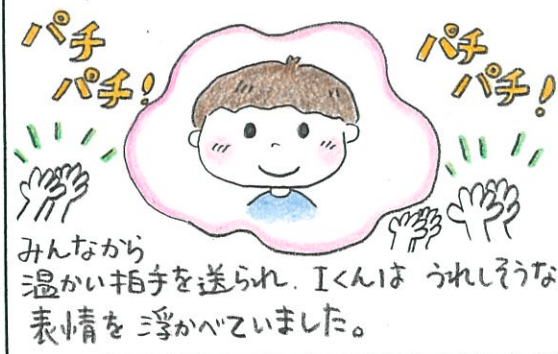 パチ
パチ!
パチ
パチ!
みんなから
温かい拍手を送られ、Iくんは うれしそうな
表情を浮かべていました。